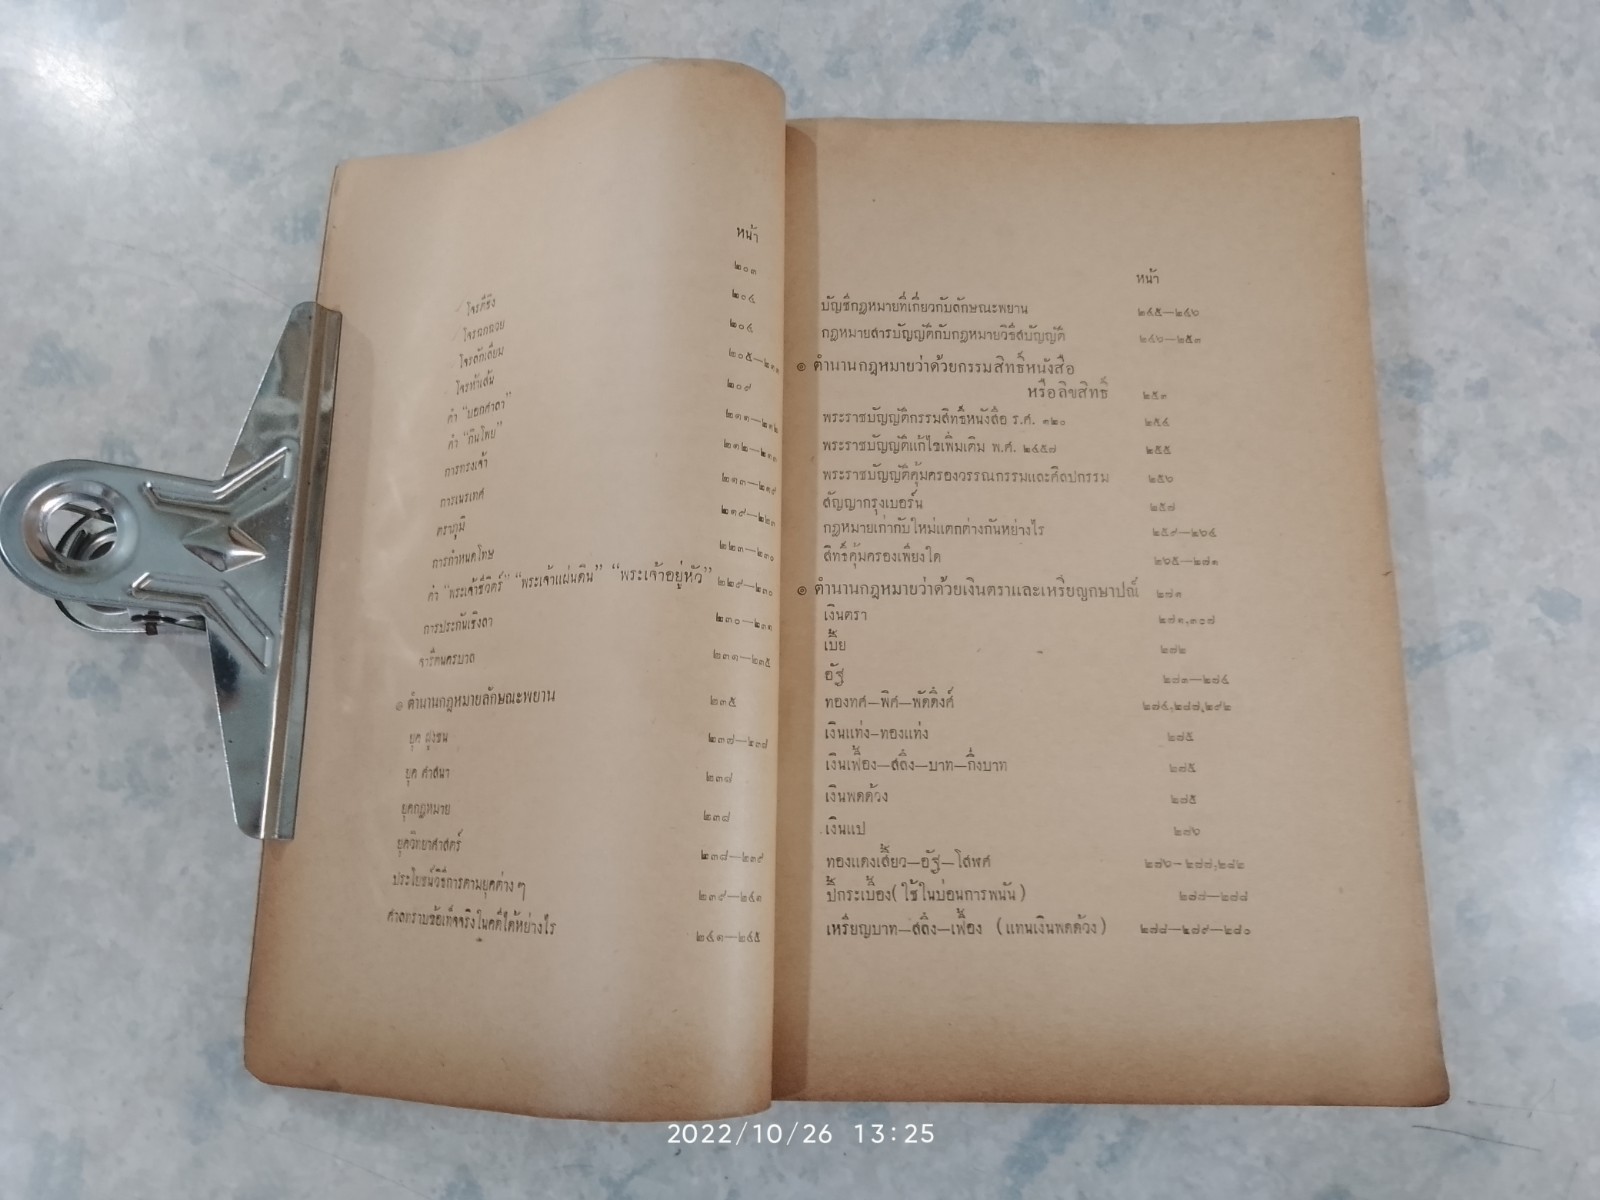 หน้า
โจรตีชิง ๒๐๓
โจรฉกฉวย ๒๐๔
โจรลักเลี่ยม ๒๐๔
โจรห้าเส้น ๒๐๕—๒๑๑
คำ "บอกศาลา" ๒๐๙
คำ "กินไพย" ๒๑๑—๒๑๒
การทรงเจ้า ๒๑๒—๒๑๓
การเนรเทศ ๒๑๓—๒๑๙
ตราภูมิ ๒๑๙—๒๒๓
การกำหนดโทษ ๒๒๓—๒๓๐
คำ "พระเจ้าชีวิตร์" "พระเจ้าแผ่นดิน" "พระเจ้าอยู่หัว" ๒๒๙—๒๓๐
การประกันเชิงลา ๒๓๐—๒๓๑
จารีตนครบาล ๒๓๑—๒๓๕
๏ ตำนานกฎหมายลักษณะพยาน ๒๓๕
ยุค ฝูงชน ๒๓๗—๒๓๘
ยุค ศาสนา ๒๓๗
ยุคกฎหมาย ๒๓๘
ยุควิทยาศาสตร์ ๒๓๘—๒๓๙
ประโยชน์วิธีการตามยุคต่าง ๆ ๒๓๙—๒๔๑
ศาลทราบข้อเท็จจริงในคดีได้หย่างไร ๒๔๑—๒๔๕
หน้า
บัญชีกฎหมายที่เกี่ยวกับลักษณะพยาน ๒๔๕—๒๔๖
กฎหมายสารบัญญัติกับกฎหมายวิธีสบัญญัติ ๒๔๖—๒๕๓
๏ ตำนานกฎหมายว่าด้วยกรรมสิทธิ์หนังสือ
หรือลิขสิทธิ์ ๒๕๓
พระราชบัญญัติกรรมสิทธิ์หนังสือ ร.ศ. ๑๒๐ ๒๕๔
พระราชบัญญัติแก้ไขเพิ่มเติม พ.ศ. ๒๔๕๗ ๒๕๕
พระราชบัญญัติคุ้มครองวรรณกรรมและศิลปกรรม ๒๕๖
สัญญากรุงเบอร์น ๒๕๗
กฎหมายเก่ากับใหม่แตกต่างกันหย่างไร ๒๕๙—๒๖๔
สิทธิ์คุ้มครองเพียงใด ๒๖๕—๒๗๑
๏ ตำนานกฎหมายว่าด้วยเงินตราและเหรียญกษาปณ์ ๒๗๑
เงินตรา ๒๗๑,๓๐๗
เบี้ย ๒๗๒
อัฐ ๒๗๓—๒๗๔
ทองทศ—พิศ—พัดดึงส์ ๒๗๔,๒๘๗,๒๙๒
เงินแท่ง—ทองแท่ง ๒๗๕
เงินเฟื้อง—สลึง—บาท—กึ่งบาท ๒๗๕
เงินพดด้วง ๒๗๕
เงินแป ๒๗๖
ทองแดงเสี้ยว—อัฐ—โสฬศ ๒๗๖—๒๗๗,๒๘๒
ปี้กระเบื้อง (ใช้ในบ่อนการพนัน) ๒๗๗—๒๗๘
เหรียญบาท—สลึง—เฟื้อง (แทนเงินพดด้วง) ๒๗๘—๒๗๙—๒๘๐
2022/10/26 13:25